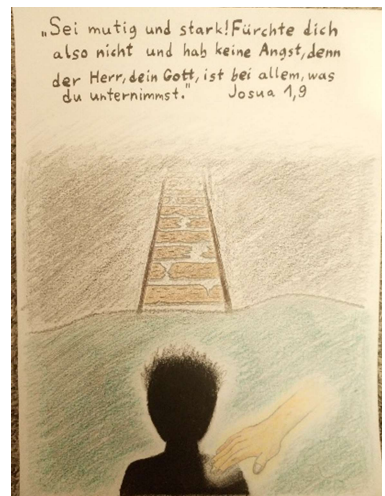 „Sei mutig und stark! Fürchte dich
also nicht und hab keine Angst, denn
der Herr, dein Gott, ist bei allem, was
du unternimmst." Josua 1,9